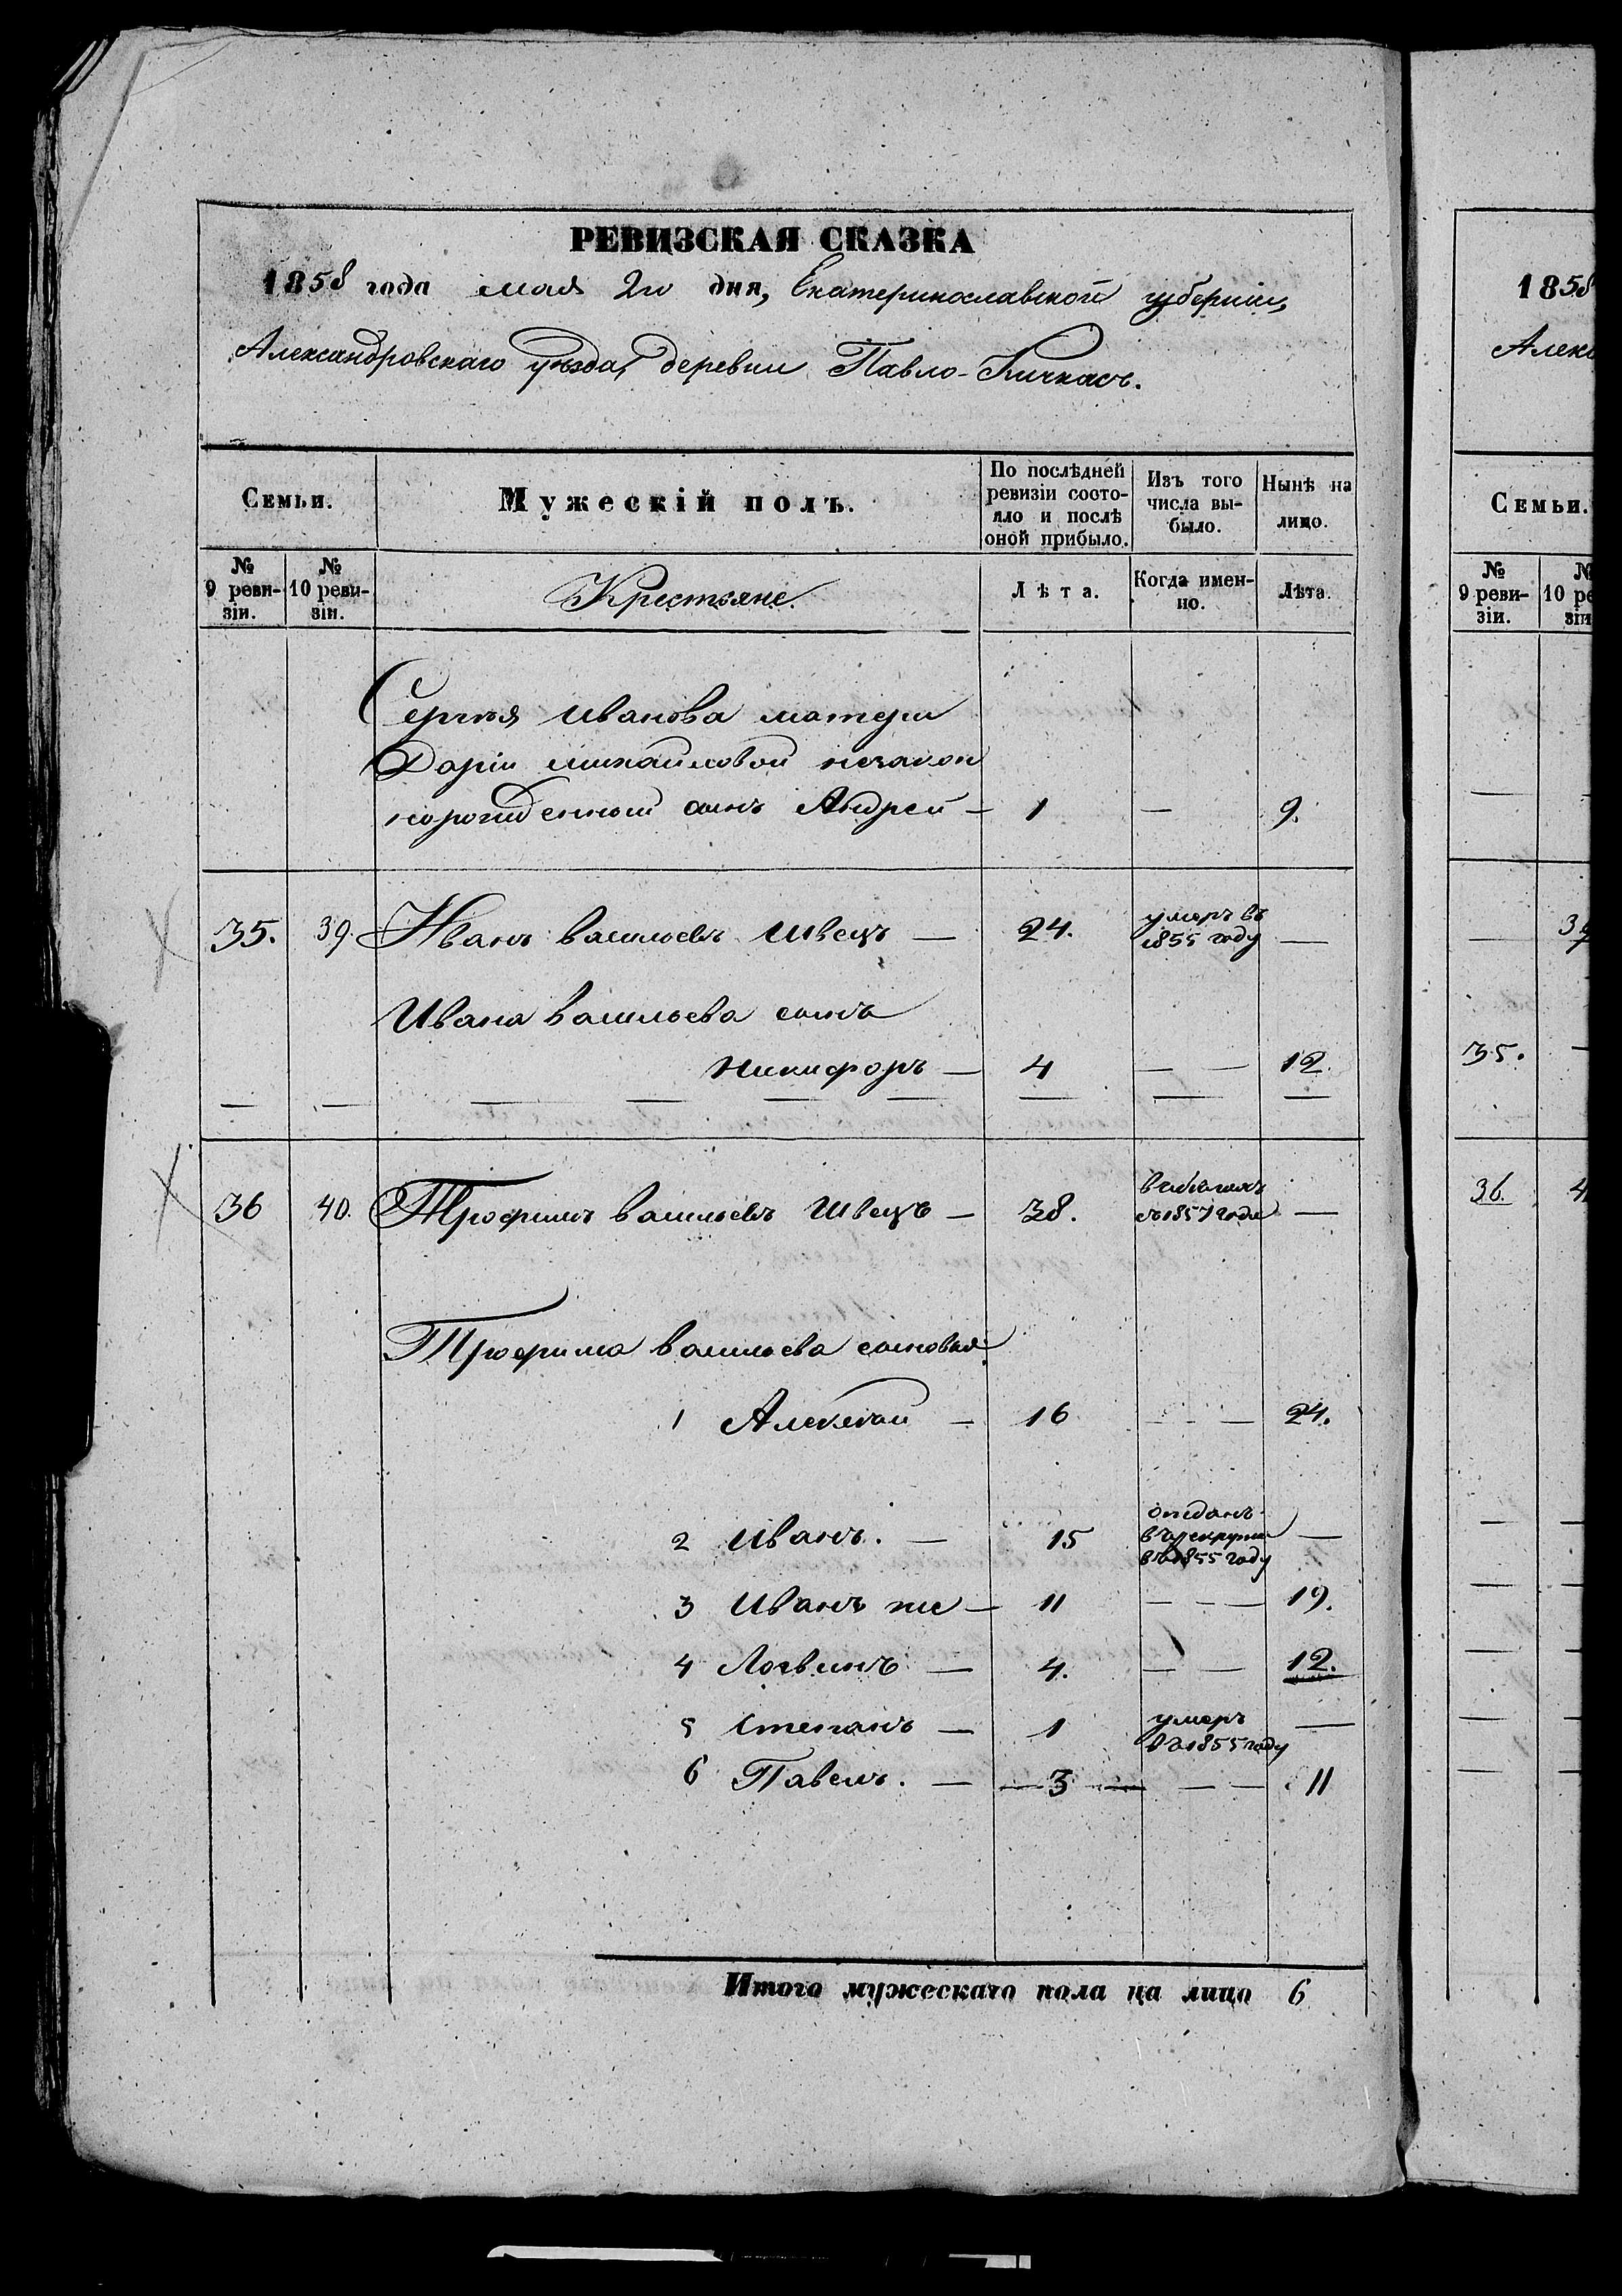 РЕВИЗСКАЯ СКАЗКА
1858 года мая 2го дня, Екатеринославской губернии,
Александровскаго уѣзда, деревни Павло-Кичкасъ.
Семьи.
Мужескій полъ.
По послѣдней ревизіи состояло и послѣ оной прибыло.
Изъ того числа выбыло.
Нынѣ на лицо.
№ 9 ревизіи.
№ 10 ревизіи.
Крестьяне.
Лѣта.
Когда именно.
Лѣта.
Сергѣя Иванова матери
Даріи Михайловой незакон
норожденный сынъ Андрей — 1 — 9.
35. 39. Иванъ Васильевъ Швецъ — 24. умеръ въ 1855 году —
Ивана Васильева сынъ
Никифоръ — 4 — — 12.
— — — — — — — — — —
36 40. Трофимъ Васильевъ Швецъ — 38. въ бѣгахъ съ 1857 года —
Трофима Васильева сыновья:
1 Алексѣй — 16 — — — 24.
2 Иванъ. — 15 отданъ въ рекруты въ 1855 году —
3 Иванъ же — 11 — — — 19.
4 Логвинъ — 4. — — 12.
5 Степанъ — 1 умеръ въ 1855 году —
6 Павелъ. — — 3 — — — 11
Итого мужескаго пола на лицо 6
1858
Алекс
Семьи.
№ 9 ревизіи.
№ 10 ре зіи
— 39
35. —
36. 4